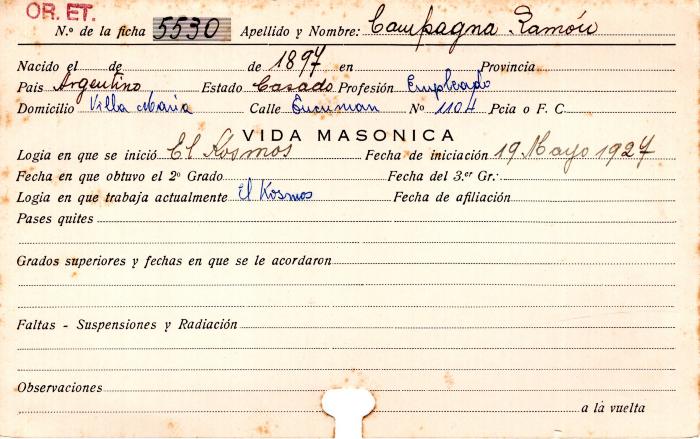 OR. ET.
N.º de la ficha 5530 Apellido y Nombre: Campagna Ramón
Nacido el de de 1897 en Provincia
Pais Argentino Estado Casado Profesión Empleado
Domicilio Villa María Calle Tucuman Nº 1104 Pcia o F. C.
VIDA MASONICA
Logia en que se inició El Kosmos Fecha de iniciación 19 Mayo 1927
Fecha en que obtuvo el 2º Grado Fecha del 3.er Gr.:
Logia en que trabaja actualmente El Kosmos Fecha de afiliación
Pases quites
Grados superiores y fechas en que se le acordaron
Faltas - Suspensiones y Radiación
Observaciones
a la vuelta